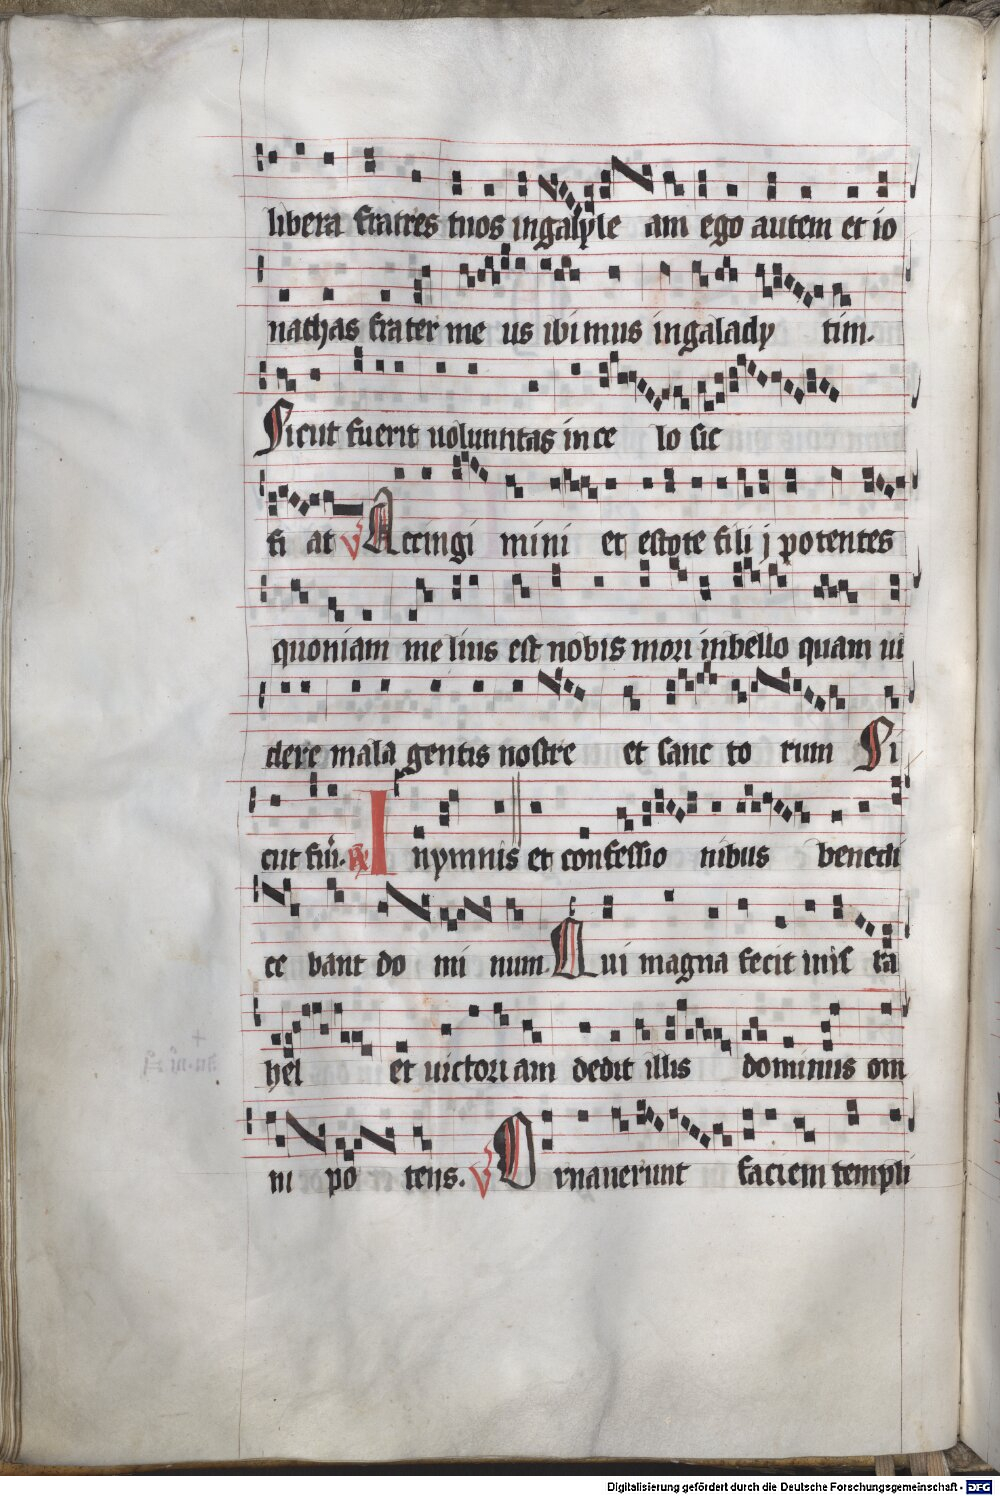 libera fratres tuos ingalyle am ego autem et io
nathas frater me us ibimus ingalady tim.
Sicut fuerit uoluntas in ce lo sic
fi at V Accingi mini et estote fili j potentes
quoniam me lius est nobis mori inbello quam ui
dere mala gentis nostre et sanc to rum Si
cut fuī. R I nymnis et confessio nibus benedi
ce bant do mi num. Qui magna fecit inis ra
hel et uictori am dedit illis dominus om
ni po tens. V Ornauerunt faciem templi
Digitalisierung gefördert durch die Deutsche Forschungsgemeinschaft - DFG